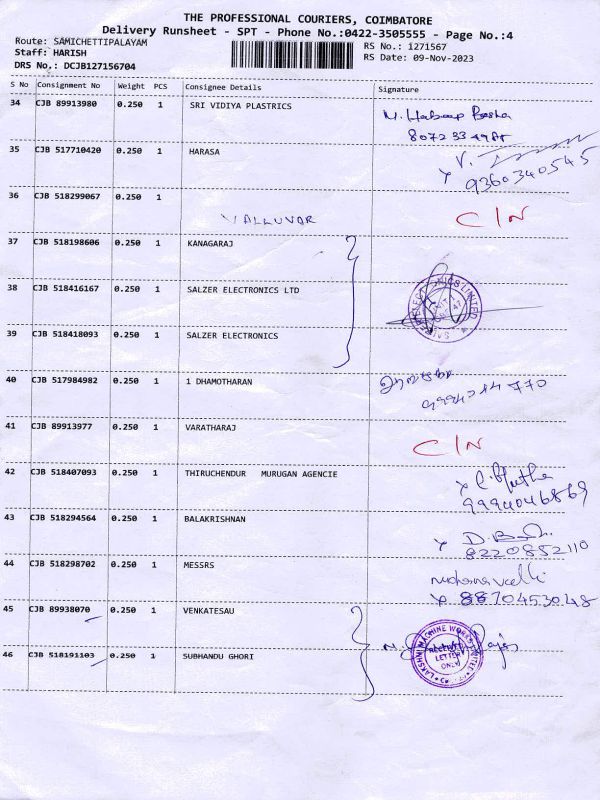 THE PROFESSIONAL COURIERS, COIMBATORE
Delivery Runsheet - SPT - Phone No.:0422-3505555 - Page No.:4
Route: SAMICHETTIPALAYAM
Staff: HARISH
DRS No.: DCJB127156704
RS No.: 1271567
RS Date: 09-Nov-2023
S No Consignment No Weight PCS Consignee Details Signature
34 CJB 89913980 0.250 1 SRI VIDIYA PLASTRICS
35 CJB 517710420 0.250 1 HARASA V.
9360340545
36 CJB 518299067 0.250 1
VALLUVAR C/N
37 CJB 518198606 0.250 1 KANAGARAJ
38 CJB 518416167 0.250 1 SALZER ELECTRONICS LTD
39 CJB 518418093 0.250 1 SALZER ELECTRONICS
40 CJB 517984982 0.250 1 1 DHAMOTHARAN
41 CJB 89913977 0.250 1 VARATHARAJ
C/N
42 CJB 518407093 0.250 1 THIRUCHENDUR MURUGAN AGENCIE
43 CJB 518294564 0.250 1 BALAKRISHNAN
8220852110
44 CJB 518298702 0.250 1 MESSRS
8870453048
45 CJB 89938070 0.250 1 VENKATESAU
46 CJB 518191103 0.250 1 SUBHANDU GHORI
LAKSHMI MACHINE WORKS LIMITED
RECEIVED
LETTER
ONLY